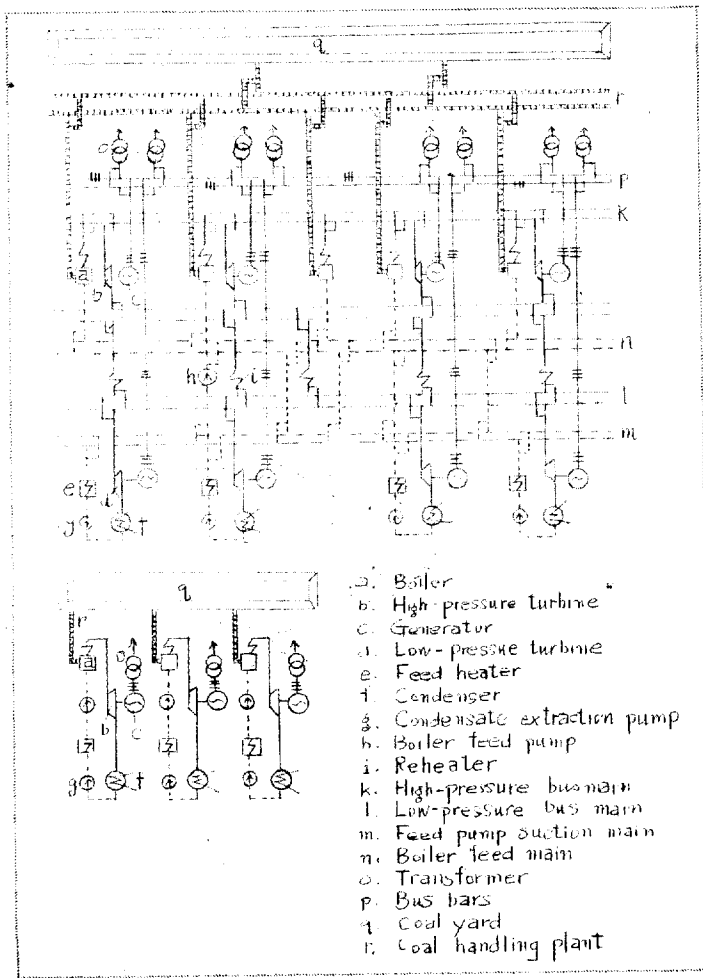 q
r
o
p
k
a
b
c
n
h
i
l
m
e
d
g
f
q
r
o
a
b
c
g
f
a. Boiler
b. High-pressure turbine
c. Generator
d. Low-pressure turbine
e. Feed heater
f. Condenser
g. Condensate extraction pump
h. Boiler feed pump
i. Reheater
k. High-pressure bus main
l. Low-pressure bus main
m. Feed pump suction main
n. Boiler feed main
o. Transformer
p. Bus bars
q. Coal yard
r. Coal handling plant